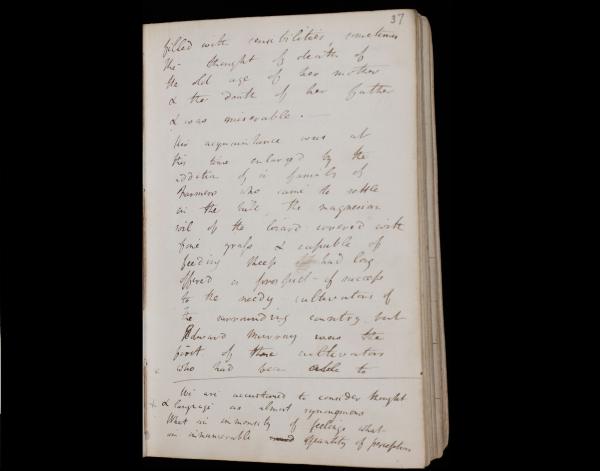 37
filled with sensibilities, sometimes
the thought of death of
the old age of her mother
& the death of her father
& was miserable. —
His acquaintance was at
this time enlarged by the
addition of a family of
Farmers who came to settle
in the the magnesian
soil of the lizard covered with
fine grass & capable of
feeding sheep had long
offered a prospect of success
to the needy cultivators of
the surrounding country but
Edward Murray was the
first of these cultivators
who had been able to
We are accustomed to consider thought
& language as almost synonymous
What an immensity of feelings what
an innumerable quantity of perceptions